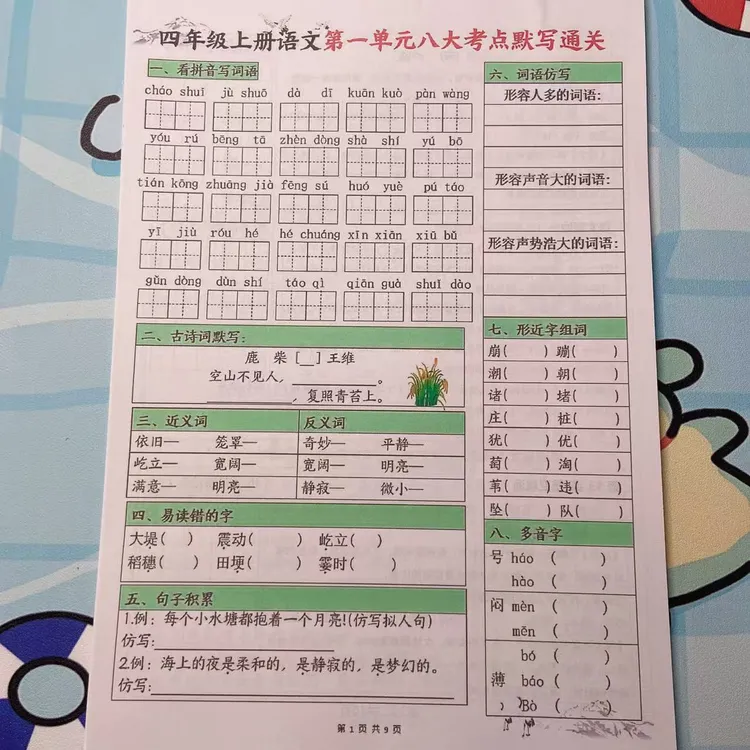 四年级上册语文第一单元八大考点默写通关
一、看拼音写词语
cháo shuǐ jù shuō dà dī kuān kuò pàn wàng
yóu rú bēng tā zhèn dòng shà shí yú bō
tián kōng zhuāng jià fēng sú huó yuè pú táo
yī jiù róu hé hé chuáng xīn xiān xiū bǔ
gǔn dòng dùn shí táo qì qiān guà shuǐ dào
二、古诗词默写:
鹿 柴 [__]王维
空山不见人，____________。
____________，复照青苔上。
三、近义词 反义词
依旧— 笼罩— 奇妙— 平静—
屹立— 宽阔— 宽阔— 明亮—
满意— 明亮— 静寂— 微小—
四、易读错的字
大堤( ) 震动( ) 屹立( )
稻穗( ) 田埂( ) 霎时( )
五、句子积累
1.例：每个小水塘都抱着一个月亮!(仿写拟人句)
仿写:
2.例：海上的夜是柔和的，是静寂的，是梦幻的。
仿写:
六、词语仿写
形容人多的词语:
形容声音大的词语:
形容声势浩大的词语:
七、形近字组词
崩( ) 蹦( )
潮( ) 朝( )
诸( ) 堵( )
庄( ) 桩( )
犹( ) 优( )
萄( ) 淘( )
苇( ) 违( )
坠( ) 队( )
八、多音字
号 háo ( )
hào ( )
闷 mèn ( )
mēn ( )
bó ( )
薄 báo ( )
Bò ( )
第 1 页 共 9 页